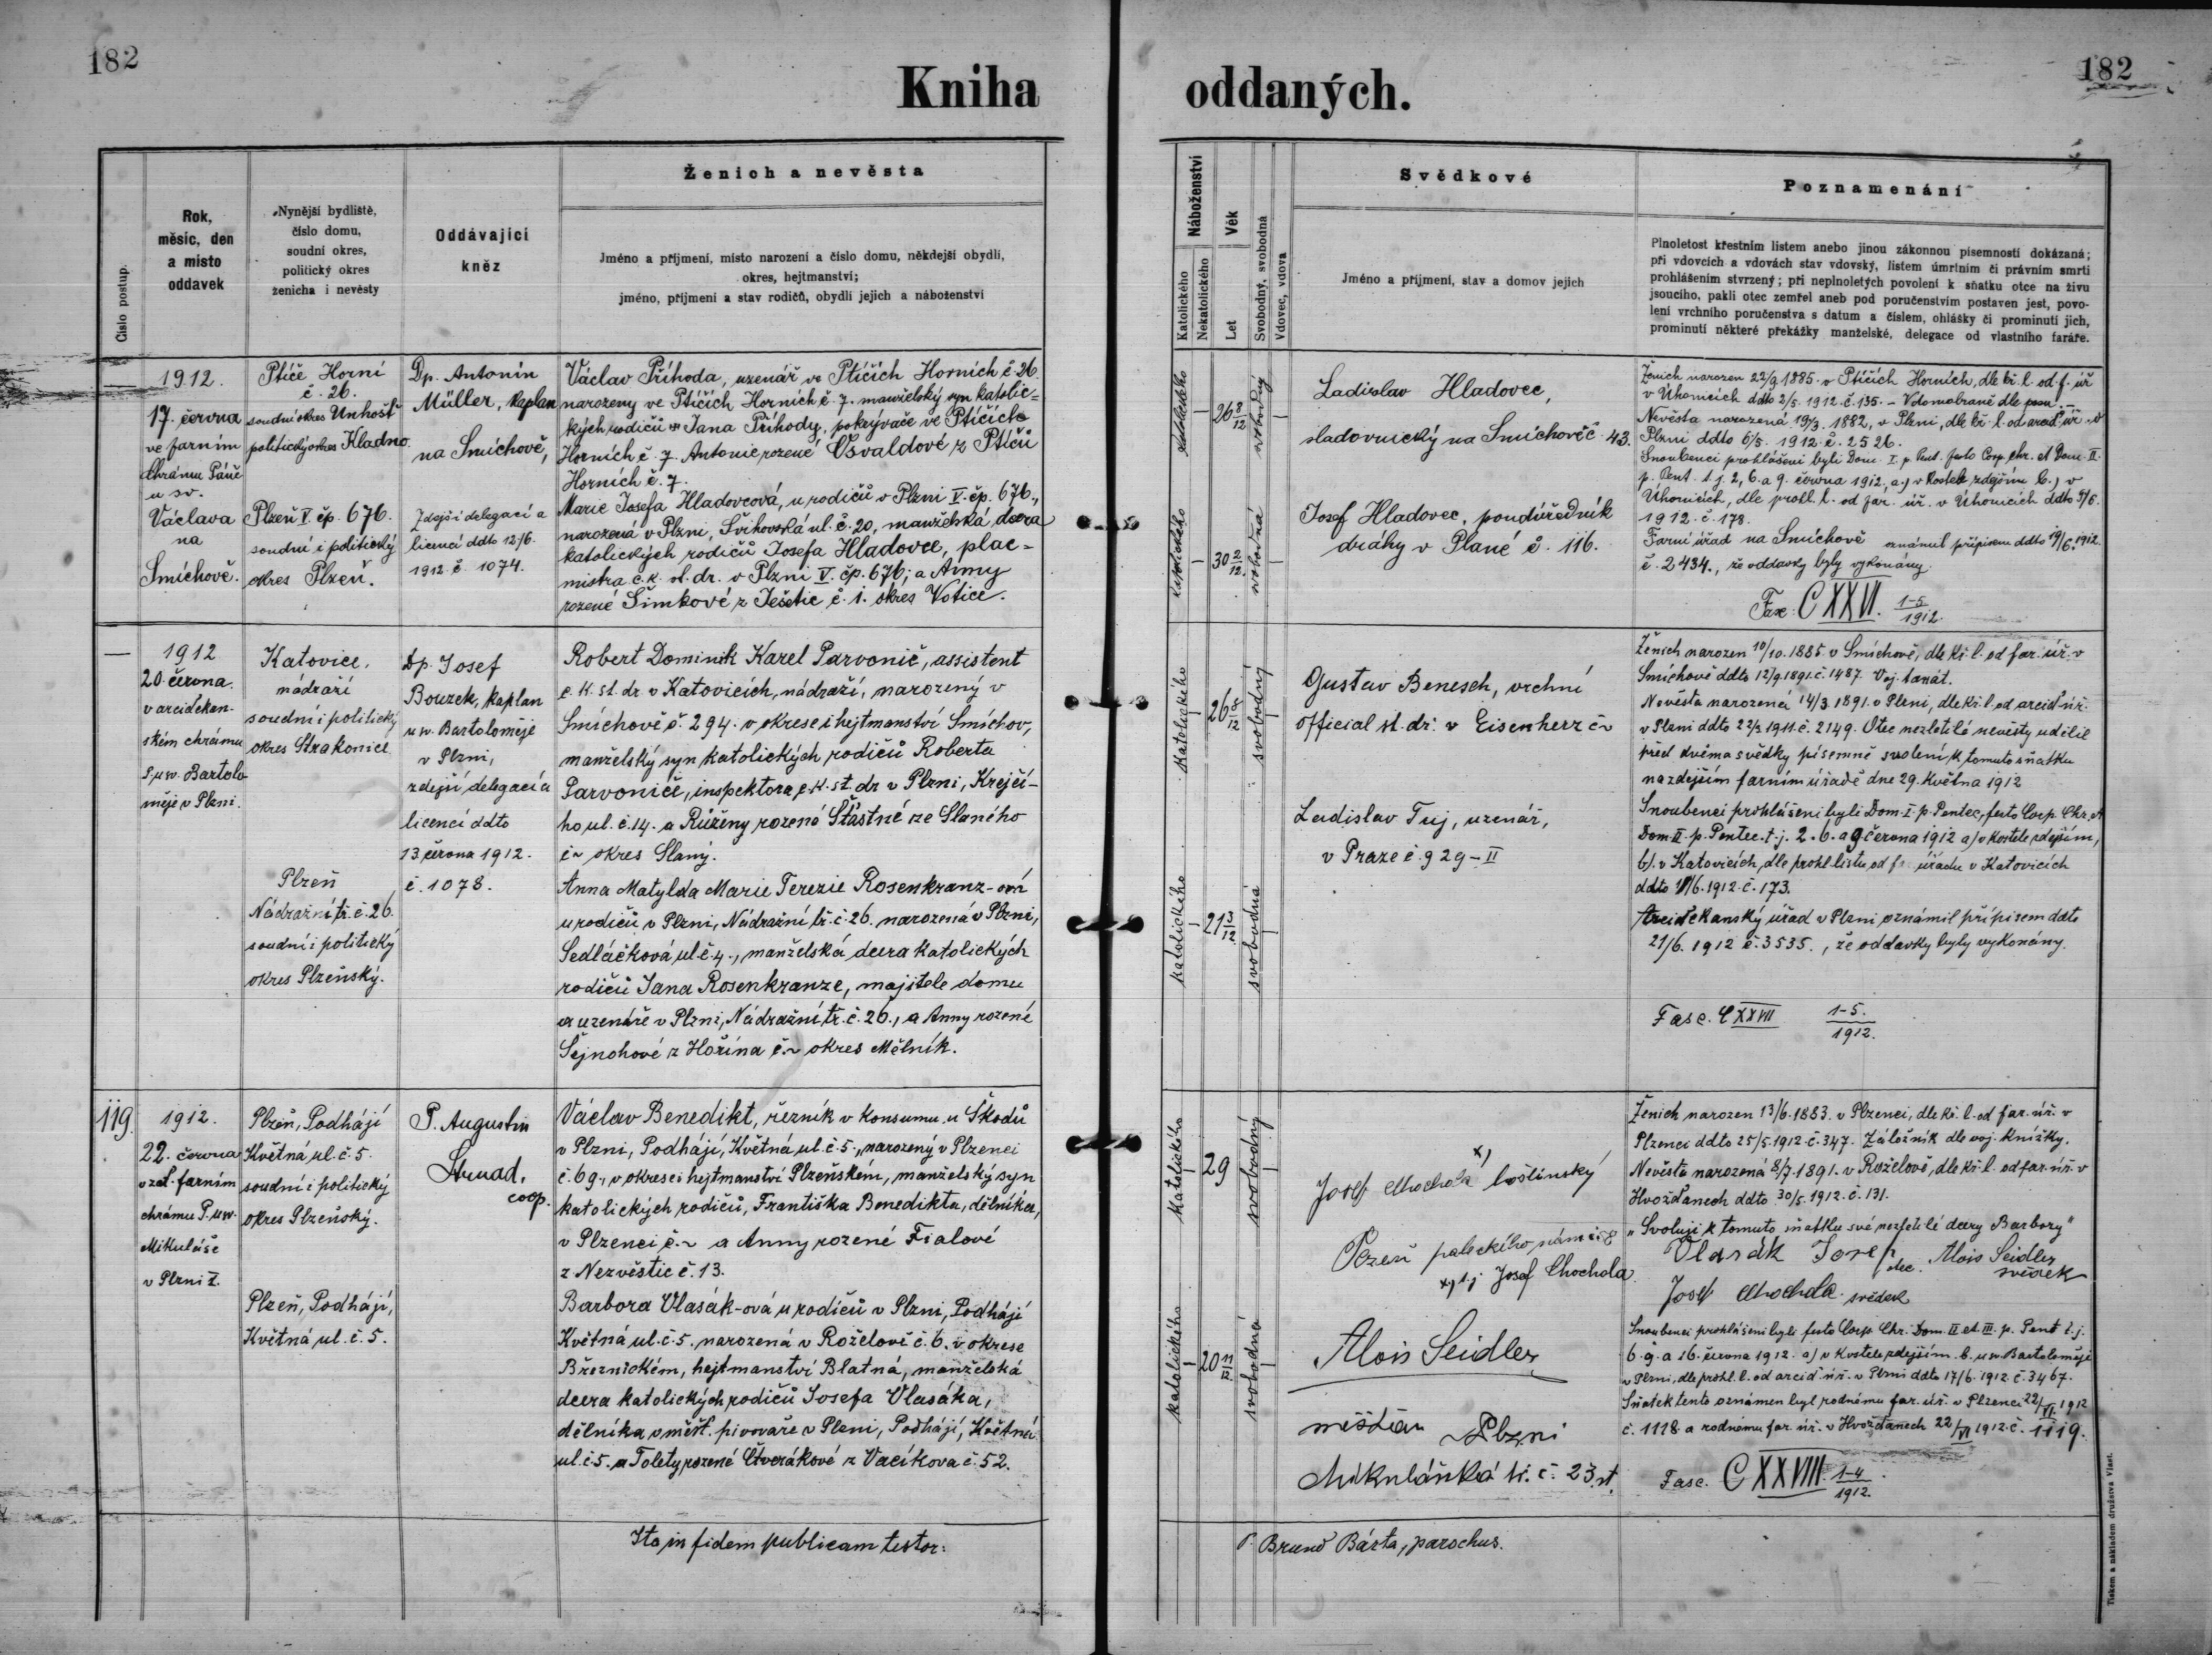 182
182
Kniha oddaných.
Číslo postup.
Rok,
měsíc, den
a místo
oddavek
Nynější bydliště,
číslo domu,
soudní okres,
politický okres
ženicha i nevěsty
Oddávající
kněz
Ženich a nevěsta
Jméno a příjmení, místo narození a číslo domu, někdejší obydlí,
okres, hejtmanství;
jméno, příjmení a stav rodičů, obydlí jejich a náboženství
Náboženství
Katolického
Nekatolického
Věk
Let
Svobodný, svobodná
Vdovec, vdova
Svědkové
Jméno a příjmení, stav a domov jejich
Poznamenání
Plnoletost křestním listem anebo jinou zákonnou písemností dokázaná;
při vdovcích a vdovách stav vdovský, listem úmrtním či právním smrti
prohlášením stvrzený; při neplnoletých povolení k sňatku otce na živu
jsoucího, pakli otec zemřel aneb pod poručenstvím postaven jest, povo-
lení vrchního poručenstva s datum a číslem, ohlášky či prominutí jich,
prominutí některé překážky manželské, delegace od vlastního faráře.
—
1912.
17. června
ve farním
chrámu Páně
u sv.
Václava
na
Smíchově.
Ptíče Horní
č. 26.
soudní okres Unhošť
politický okres Kladno.
Plzeň V. čp. 676.
soudní i politický
okres Plzeň.
Dp. Antonín
Müller, kaplan
na Smíchově,
Zdejší delegací a
licencí ddto 12/6.
1912 č. 1074.
Václav Příhoda, uzenář ve Ptíčích Horních č. 26.
narozený ve Ptíčích Horních č. 7. manželský syn katolic-
kých rodičů Jana Příhody, pokrývače ve Ptíčích
Horních č. 7. Antonie rozené Osvaldové z Ptíčů
Horních č. 7.
Marie Josefa Hladovcová, u rodičů v Plzni V. čp. 676.,
narozená v Plzni, Švihovská ul. č. 20, manželská dcera
katolických rodičů Josefa Hladovce, plac-
mistra c. k. st. dr. v Plzni V. čp. 676; a Anny
rozené Šimkové z Ješetic č. 1. okres Votice.
katolického
26 8/12
svobodný
katolického
30 2/12.
svobodná
Ladislav Hladovec,
sladovnický na Smíchově č. 43.
Josef Hladovec, poduředník
dráhy v Plané č. 116.
Ženich narozen 22/9 1885. v Ptíčích Horních, dle kř. l. od f. úř
v Úhonicích ddto 2/5. 1912. č. 135. – V domobraně dle
Nevěsta narozená 19/3. 1882, v Plzni, dle kř. l. od arcid. úř. v
Plzni ddto 6/5. 1912. č. 2526.
Snoubenci prohlášeni byli Dom. I. p. Pent. festo Corp. Chr. et Dom. II.
p. Pent. t. j. 2, 6. a 9. června 1912, a.) v kostele zdejším b.) v
Úhonicích, dle prohl. l. od far. úř. v Úhonicích ddto 9/6.
1912. č. 178.
Farní úřad na Smíchově oznámil přípisem ddto 19/6. 1912.
č. 2434., že oddavky byly vykonány.
Fasc. CXXVI. 1-5/1912.
—
1912
20. června.
v arciděkan-
ském chrámu
P. u sv. Bartolo-
měje v Plzni.
Katovice,
nádraží
soudní i politický
okres Strakonice
Plzeň
Nádražní tř. č. 26.
soudní i politický
okres Plzeňský.
Dp. Josef
Bouzek, kaplan
u sv. Bartoloměje
v Plzni,
zdejší delegací a
licencí ddto
13. června 1912.
č. 1078.
Robert Dominik Karel Parvonič, assistent
c. k. st. dr. v Katovicích, nádraží, narozený v
Smíchově č. 294. v okrese i hejtmanství Smíchov,
manželský syn katolických rodičů Roberta
Parvoniče, inspektora c. k. st. dr. v Plzni, Krejčí-
ho ul. č. 14. a Růženy rozené Šťastné ze Slaného
č~ okres Slaný.
Anna Matylda Marie Terezie Rosenkranz-ová
u rodičů v Plzni, Nádražní tř. č. 26. narozená v Plzni,
Sedláčková ul. č. 4., manželská dcera katolických
rodičů Jana Rosenkranze, majitele domu
a uzenáře v Plzni, Nádražní tř. č. 26., a Anny rozené
Šejnohové z Hořína č.~ okres Mělník.
katolického
26 8/12
svobodný
katolického
21 3/12
svobodná
Gustav Benesch, vrchní
official st. dr. v Eisenherz č~
Ladislav Tuj, uzenář,
v Praze č. 929-II
Ženich narozen 10/10. 1885. v Smíchově, dle kř. l. od far. úř. v
Smíchově ddto 12/9. 1891. č. 1487. Voj. taxát.
Nevěsta narozená 14/3. 1891. v Plzni, dle kř. l. od arcid. úř.
v Plzni ddto 22/3. 1911. č. 2149. Otec nezletilé nevěsty udělil
před dvěma svědky písemné svolení k tomuto sňatku
na zdejším farním úřadě dne 29. května 1912
Snoubenci prohlášeni byli Dom. I. p. Pentec., festo Corp. Chr. et
Dom. II. p. Pentec. t. j. 2. 6. a 9 června 1912 a) v kostele zdejším,
b). v Katovicích, dle prohl. listu od f. úřadu v Katovicích
ddto /6. 1912. č. 173.
Arciděkanský úřad v Plzni oznámil přípisem ddto
21/6. 1912 č. 3535., že oddavky byly vykonány.
Fasc. CXXVII 1-5./1912.
119.
1912.
22. června
v zat. farním
chrámu P. u sv.
Mikuláše
v Plzni I.
Plzeň, Podhájí
Květná ul. č. 5.
soudní i politický
okres Plzeňský.
Plzeň, Podhájí,
Květná ul. č. 5.
P. Augustin
coop.
Václav Benedikt, řezník v konsumu u Škodů
v Plzni, Podhájí, Květná ul. č. 5., narozený v Plzenci
č. 69., v okrese i hejtmanství Plzeňském, manželský syn
katolických rodičů, Františka Benedikta, dělníka,
v Plzenci č.~ a Anny rozené Fialové
z Nezvěstic č. 13.
Barbora Vlasák-ová u rodičů v Plzni, Podhájí
Květná ul. č. 5. narozená v Roželově č. 6. v okrese
Březnickém, hejtmanství Blatná, manželská
dcera katolických rodičů Josefa Vlasáka,
dělníka v měšť. pivovaře v Plzni, Podhájí, Květná
ul. č. 5. a Tolety rozené Čtverákové z Vacíkova č. 52.
katolického
29
svobodný
katolického
20 11/12
svobodná
Josef Chochola x) boštinský
Plzeň paleckého nám. č. 8
x) t. j. Josef Chochola.
Alois Seidler
měšťan v Plzni
Mikulášká tř. č. 23.
Ženich narozen 13/6. 1883. v Plzenci, dle kř. l. od far. úř. v
Plzenci ddto 25/5. 1912. č. 347. Záložník dle voj. knížky.
Nevěsta narozená 8/7. 1891. v Roželově, dle kř. l. od far. úř. v
Hvožďanech ddto 30/5. 1912. č. 131.
„Svoluji k tomuto sňatku své nezletilé dcery Barbory"
Vlasák Josef otec. Alois Seidler svědek
Josef Chochola svědek
Snoubenci prohlášeni byli festo Corp. Chr. Dom. II et III. p. Pent t. j.
6. 9. a 16. června 1912. a) v kostele zdejším. b. u sv. Bartoloměje
v Plzni, dle prohl. l. od arcid. úř. v Plzni ddto 17/6. 1912. č. 3467.
Sňatek tento oznámen byl rodnému far. úř. v Plzenci 22/VI. 1912
č. 1118. a rodnému far. úř. v Hvožďanech 22/VI 1912. č. 1119.
Fasc. CXXVIII. 1-4/1912.
Ita in fidem publicam testor:
P. Bruno Bárta, parochus.
Tiskem a nákladem družstva Vlast.